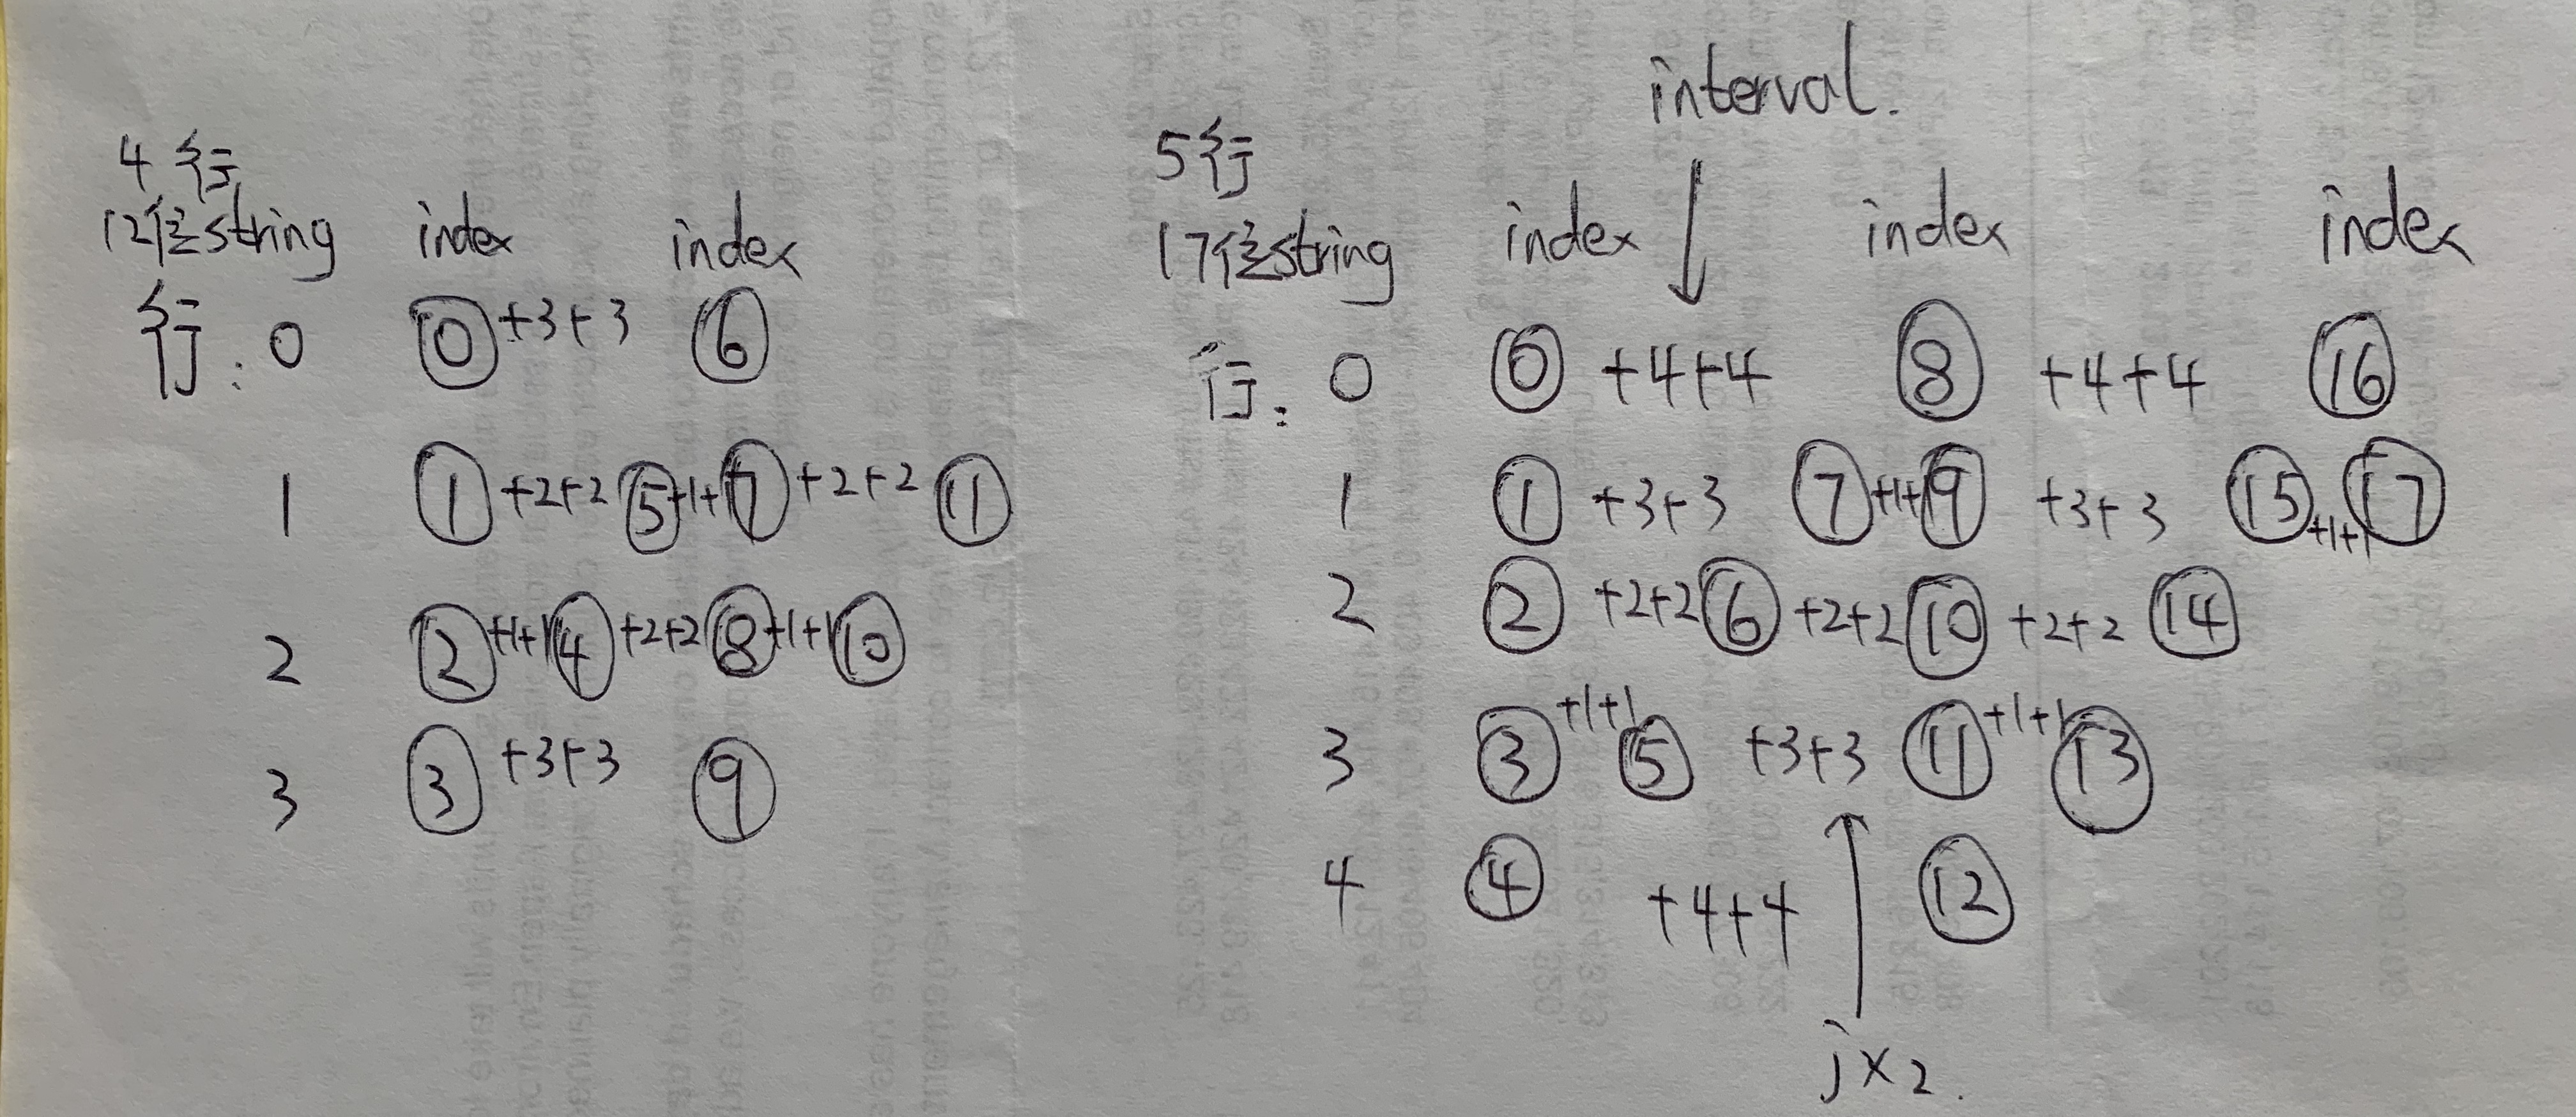 4行
12位string index index
行: 0 0 +3+3 6
1 1 +2+2 5 +1+1 7 +2+2 11
2 2 +1+1 4 +2+2 8 +1+1 10
3 3 +3+3 9
interval.
5行
17位string index index index
行: 0 0 +4+4 8 +4+4 16
1 1 +3+3 7 +1+1 9 +3+3 15 +1+1 17
2 2 +2+2 6 +2+2 10 +2+2 14
3 3 +1+1 5 +3+3 11 +1+1 13
4 4 +4+4 12
j×2.